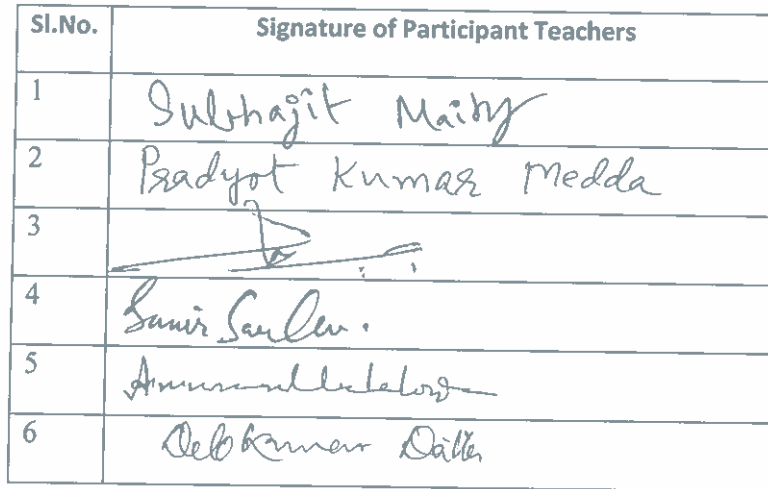 Sl.No. Signature of Participant Teachers
1 Subhajit Maity
2 Pradyot Kumar Medda
3
4 Samir
5
6 Debkumar Datta